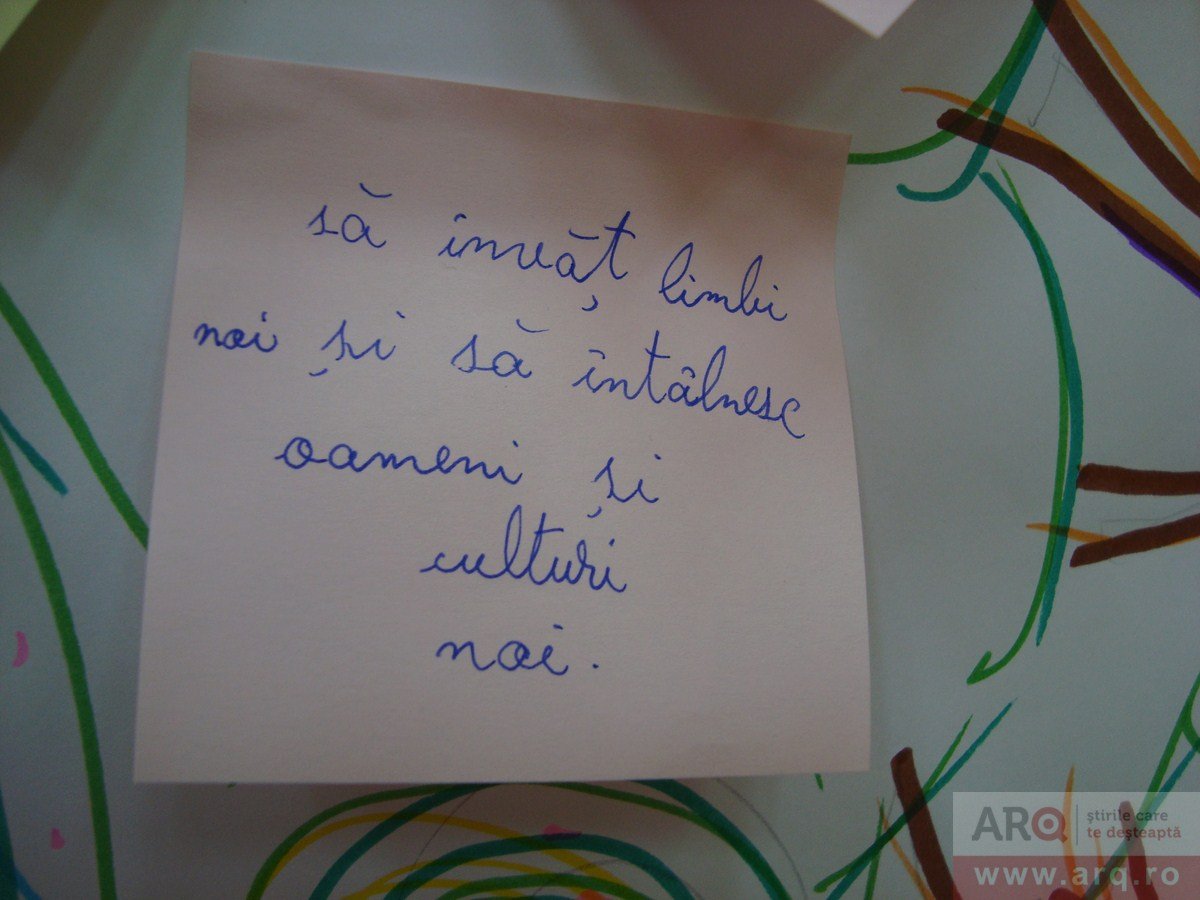 să învăț limbi
noi și să întâlnesc
oameni și
culturi
noi.
ARQ
știrile care
te deșteaptă
www.arq.ro